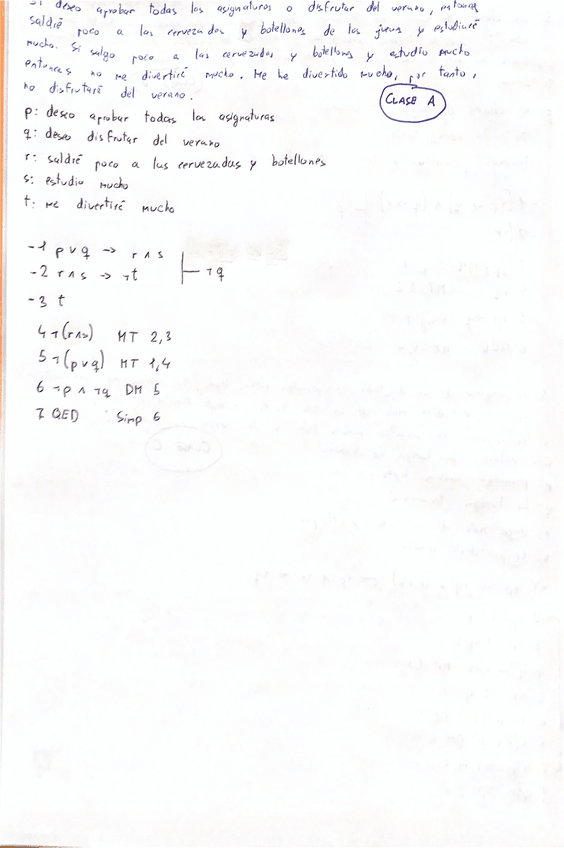 Si deseo aprobar todas las asignaturas o disfrutar del verano, entonces
saldré poco a las cervezadas y botellones de los jueves y estudiaré
mucho. Si salgo poco a las cervezadas y botellones y estudio mucho
entonces no me divertiré mucho. Me he divertido mucho, por tanto,
no disfrutaré del verano.
CLASE A
p: deseo aprobar todas las asignaturas
q: deseo disfrutar del verano
r: saldré poco a las cervezadas y botellones
s: estudio mucho
t: me divertiré mucho
-1 p v q -> r ∧ s
-2 r ∧ s -> ¬t ⊢ ¬q
-3 t
4 ¬(r∧s) MT 2,3
5 ¬(p v q) MT 1,4
6 ¬p ∧ ¬q DM 5
7 QED Simp 6